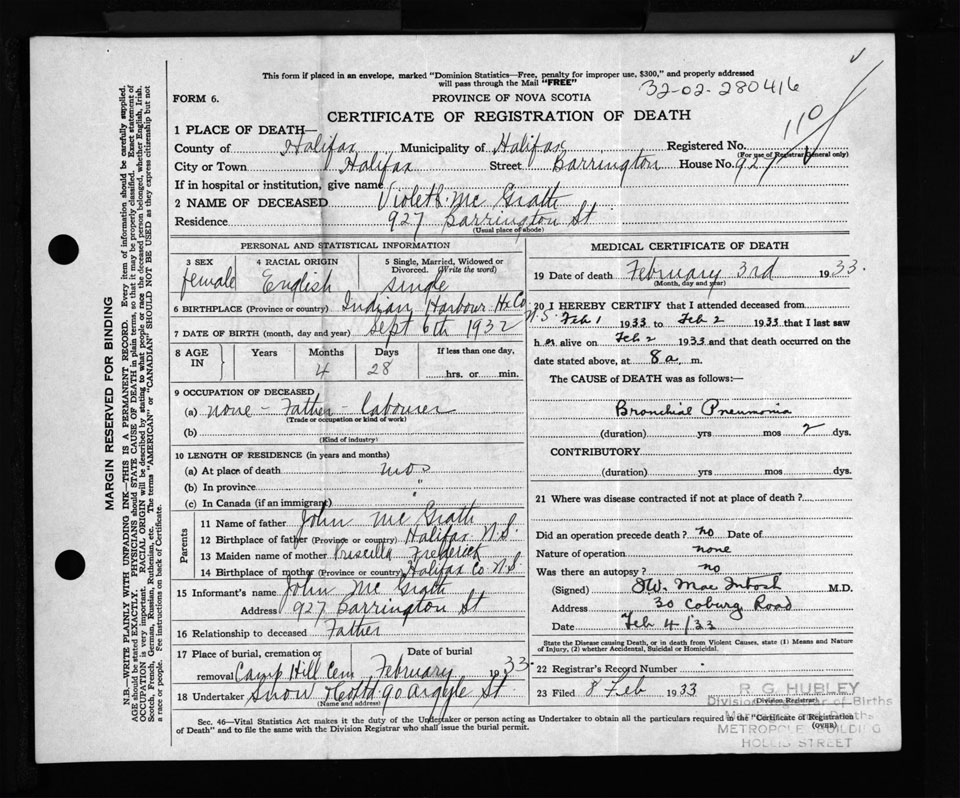 This form if placed in an envelope, marked "Dominion Statistics—Free, penalty for improper use, $300," and properly addressed
will pass through the Mail "FREE"
32-02-280416
FORM 6.
PROVINCE OF NOVA SCOTIA
CERTIFICATE OF REGISTRATION OF DEATH
110
1 PLACE OF DEATH—
County of Halifax Municipality of Halifax Registered No.
(For use of Registrar General only)
City or Town Halifax Street Barrington House No. 927
If in hospital or institution, give name
2 NAME OF DECEASED Violet Mc Grath
Residence 927 Barrington St.
(Usual place of abode)
PERSONAL AND STATISTICAL INFORMATION
3 SEX female
4 RACIAL ORIGIN English
5 Single, Married, Widowed or Divorced. (Write the word) single
6 BIRTHPLACE (Province or country) Indian Harbour Hx Co. N.S.
7 DATE OF BIRTH (month, day and year) Sept 6th 1932
8 AGE IN Years Months Days If less than one day,
4 28 hrs. or min.
9 OCCUPATION OF DECEASED
(a) none - Father - labourer
(Trade or occupation or kind of work)
(b)
(Kind of industry)
10 LENGTH OF RESIDENCE (in years and months)
(a) At place of death mos
(b) In province "
(c) In Canada (if an immigrant)
Parents
11 Name of father John Mc Grath
12 Birthplace of father (Province or country) Halifax N.S.
13 Maiden name of mother Priscilla Frederick
14 Birthplace of mother (Province or country) Halifax Co N.S.
15 Informant's name John Mc Grath
Address 927 Barrington St
16 Relationship to deceased Father
17 Place of burial, cremation or removal Camp Hill Cem Date of burial February 1933.
18 Undertaker Snow & Co Ltd 90 Argyle St.
(Name and address)
MEDICAL CERTIFICATE OF DEATH
19 Date of death February 3rd 1933.
(Month, day and year)
20 I HEREBY CERTIFY that I attended deceased from
Feb 1 1933 to Feb 2 1933 that I last saw
h er alive on Feb 2 1933 and that death occurred on the
date stated above, at 8 a. m.
The CAUSE OF DEATH was as follows:
Bronchial Pneumonia
(duration) yrs mos 2 dys.
CONTRIBUTORY
(duration) yrs mos dys.
21 Where was disease contracted if not at place of death?
Did an operation precede death? no Date of
Nature of operation none
Was there an autopsy? no
(Signed) Mac Intosh M.D.
Address 30 Coburg Road
Date Feb 4/33
State the Disease causing Death, or in death from Violent Causes, state (1) Means and Nature
of Injury, (2) whether Accidental, Suicidal or Homicidal.
22 Registrar's Record Number
23 Filed 8 Feb 1933
(Division Registrar)
R. G. HUBLEY
Division Registrar of Births
METROPOLE BUILDING
HOLLIS STREET
Sec. 46—Vital Statistics Act makes it the duty of the Undertaker or person acting as Undertaker to obtain all the particulars required in the "Certificate of Registration
of Death" and to file the same with the Division Registrar who shall issue the burial permit.
(OVER)
MARGIN RESERVED FOR BINDING
N.B.—WRITE PLAINLY WITH UNFADING INK—THIS IS A PERMANENT RECORD. Every item of information should be carefully supplied.
AGE should be stated EXACTLY. PHYSICIANS should STATE CAUSE OF DEATH in plain terms, so that it may be properly classified. Exact statement of
OCCUPATION is very important. RACIAL ORIGIN will be described by stating to what people or race the deceased person belonged, whether English, Irish,
Scotch, French, German, Russian, Ruthenian, etc. The terms "AMERICAN" or "CANADIAN" SHOULD NOT BE USED as they express citizenship but not
a race or people. Fee instructions on back of Certificate.